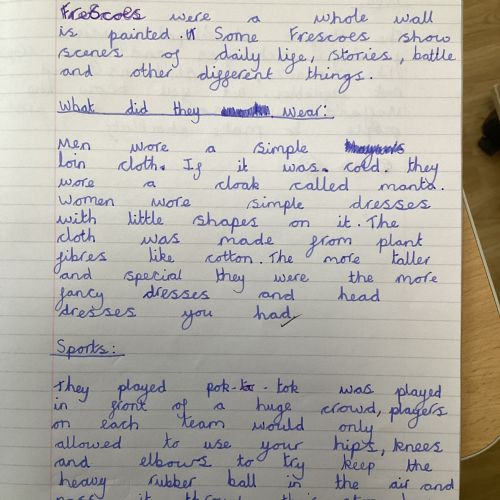 Frescoes were a whole wall
is painted. Some Frescoes show
scenes of daily life, stories, battle
and other different things.
What did they wear:
Men wore a simple
loin cloth. If it was. cold. they
wore a cloak called manta.
Women wore simple dresses
with little shapes on it. The
cloth was made from plant
fibres like cotton. The more taller
and special they were the more
fancy dresses and head
dresses you had
Sports:
They played pok-ta-tok was played
in front of a huge crowd, players
on each team would only
allowed to use your hips, knees
and elbows to try keep the
heavy rubber ball in the air and